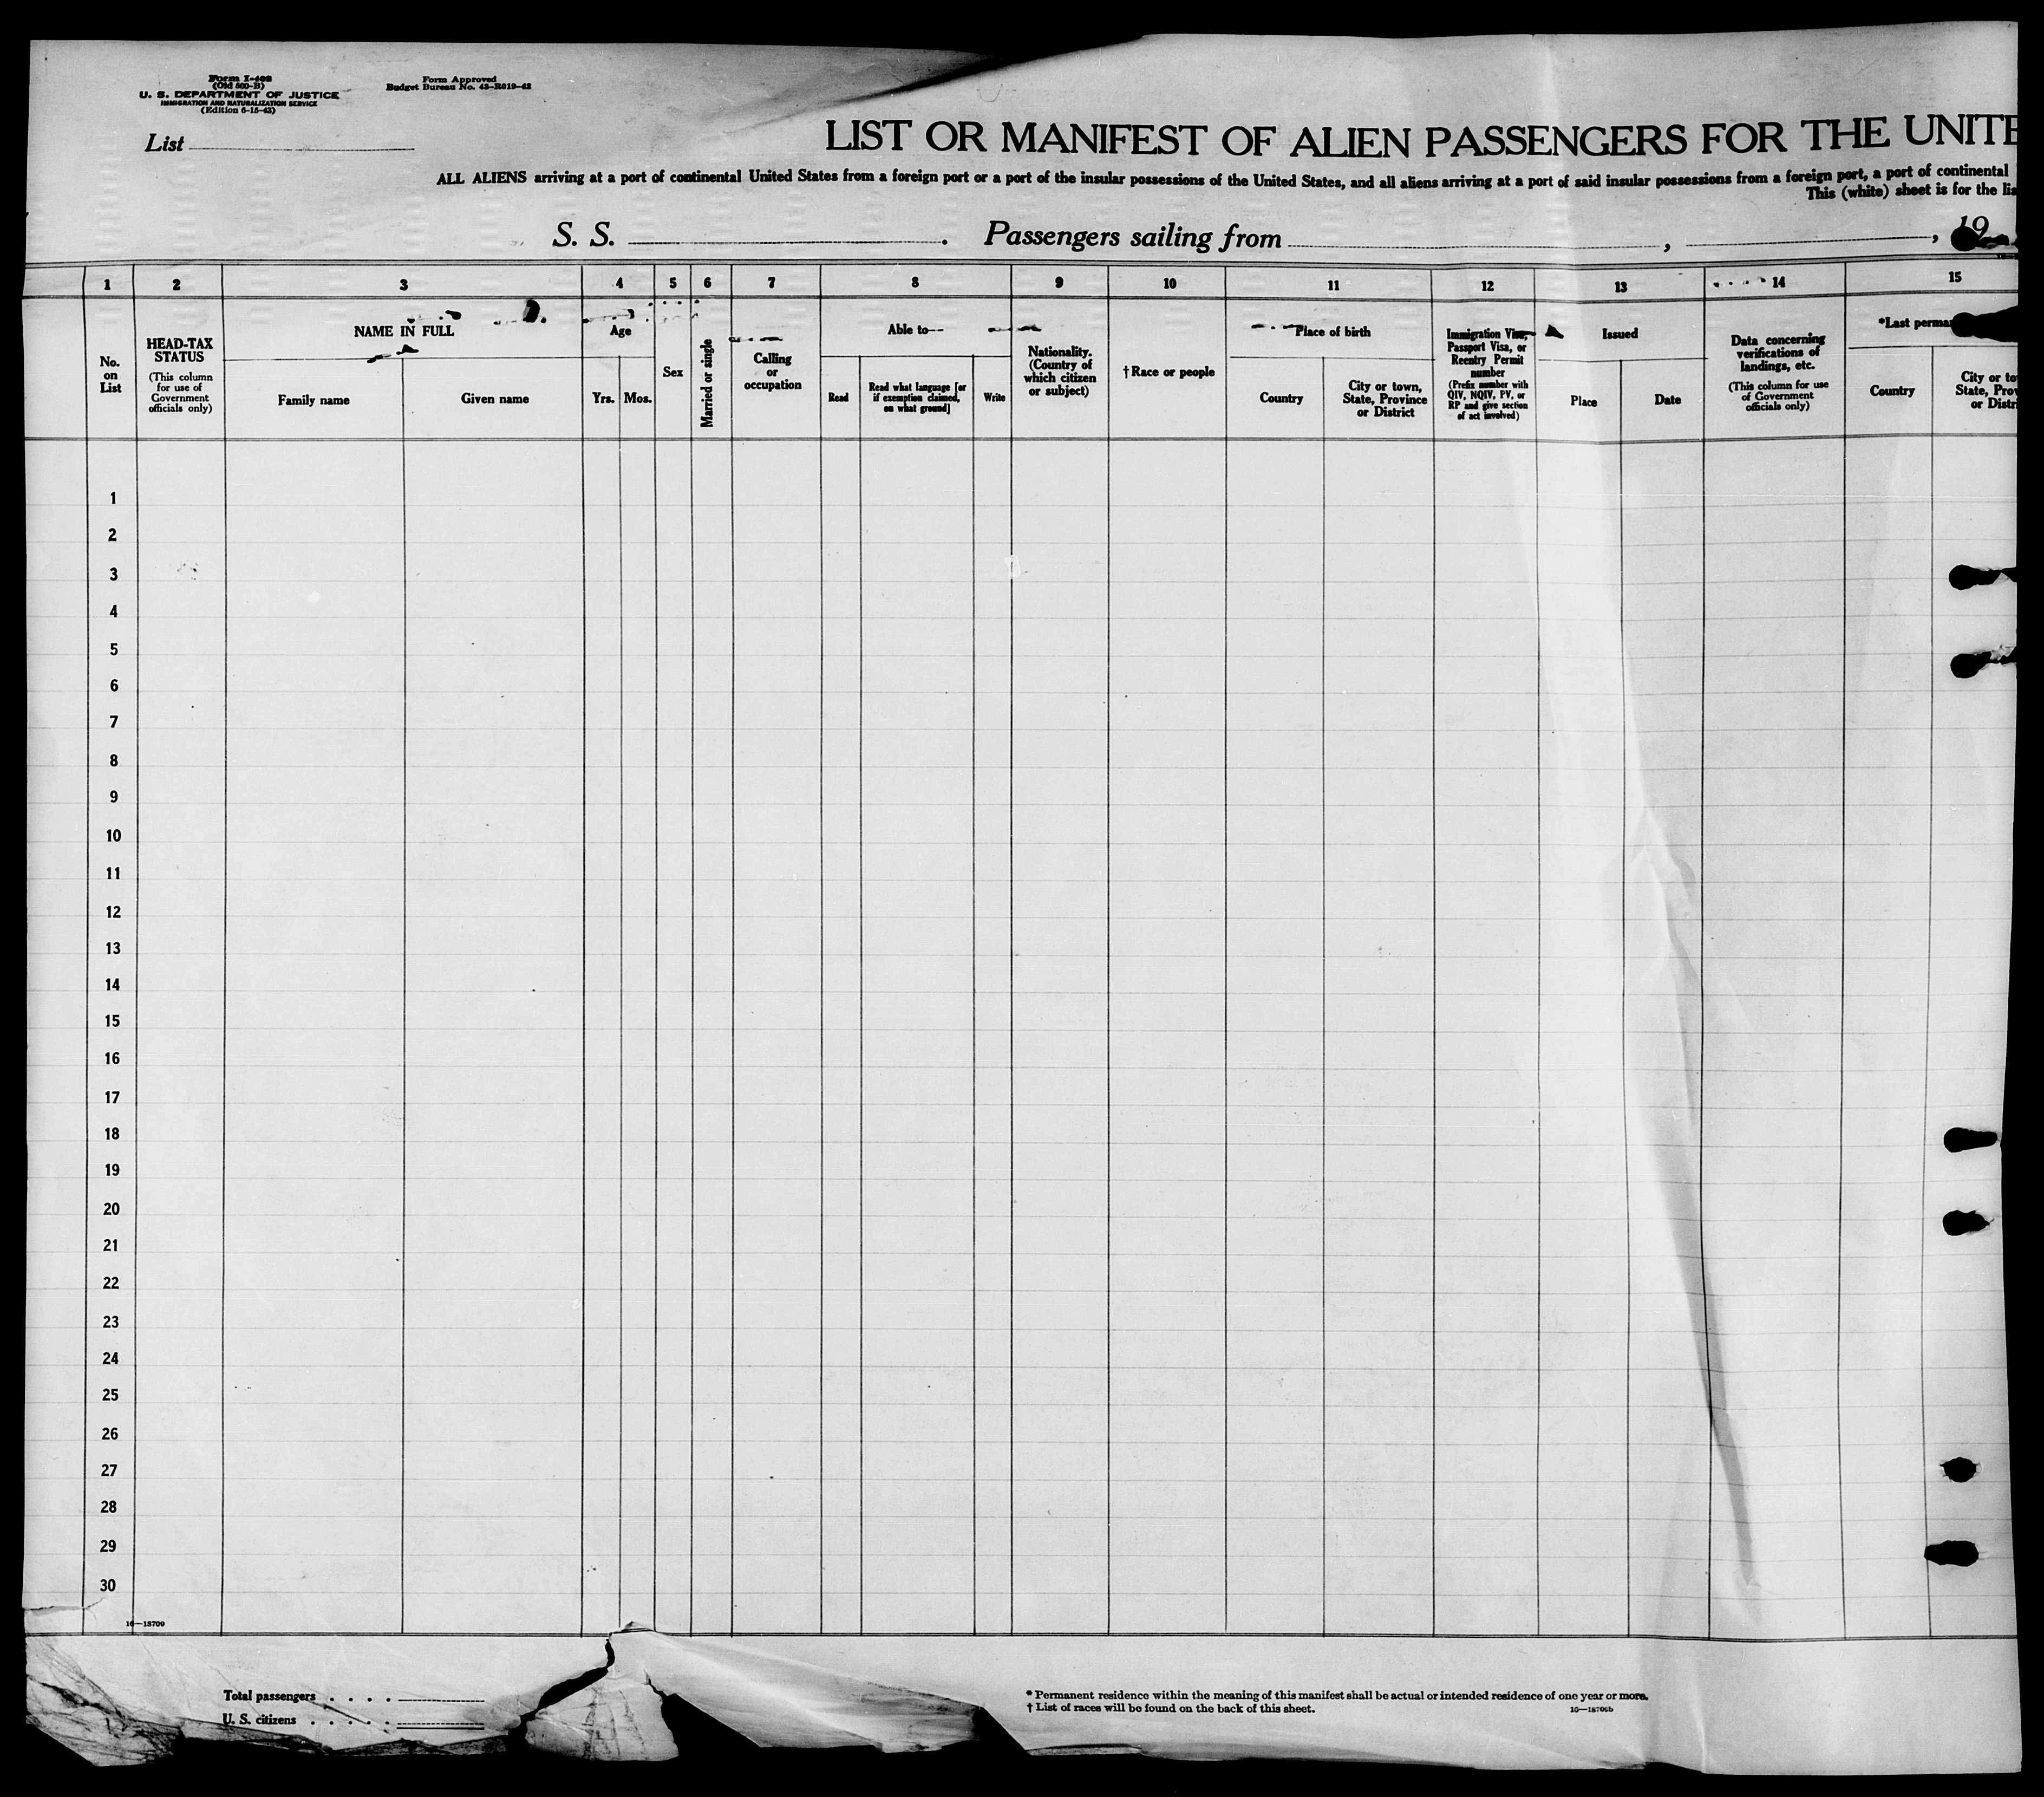 Form I-408
(Old 500-B)
U. S. DEPARTMENT OF JUSTICE
IMMIGRATION AND NATURALIZATION SERVICE
(Edition 6-15-43)
Form Approved
Budget Bureau No. 43-R019-42
List
LIST OR MANIFEST OF ALIEN PASSENGERS FOR THE UNITE
ALL ALIENS arriving at a port of continental United States from a foreign port or a port of the insular possessions of the United States, and all aliens arriving at a port of said insular possessions from a foreign port, a port of continental
This (white) sheet is for the lis
S. S. . Passengers sailing from , , 19
1 2 3 4 5 6 7 8 9 10 11 12 13 14 15
No.
on
List
HEAD-TAX
STATUS
(This column
for use of
Government
officials only)
NAME IN FULL
Family name
Given name
Age
Yrs.
Mos.
Sex
Married or single
Calling
or
occupation
Able to—
Read
Read what language [or
if exemption claimed,
on what ground]
Write
Nationality.
(Country of
which citizen
or subject)
†Race or people
Place of birth
Country
City or town,
State, Province
or District
Immigration Visa,
Passport Visa, or
Reentry Permit
number
(Prefix number with
QIV, NQIV, PV, or
RP and give section
of act involved)
Issued
Place
Date
Data concerning
verifications of
landings, etc.
(This column for use
of Government
officials only)
*Last perma
Country
City or to
State, Prov
or Distri
1
2
3
4
5
6
7
8
9
10
11
12
13
14
15
16
17
18
19
20
21
22
23
24
25
26
27
28
29
30
16—18709
Total passengers . . . .
U. S. citizens . . . . .
* Permanent residence within the meaning of this manifest shall be actual or intended residence of one year or more.
† List of races will be found on the back of this sheet.
16—18709b